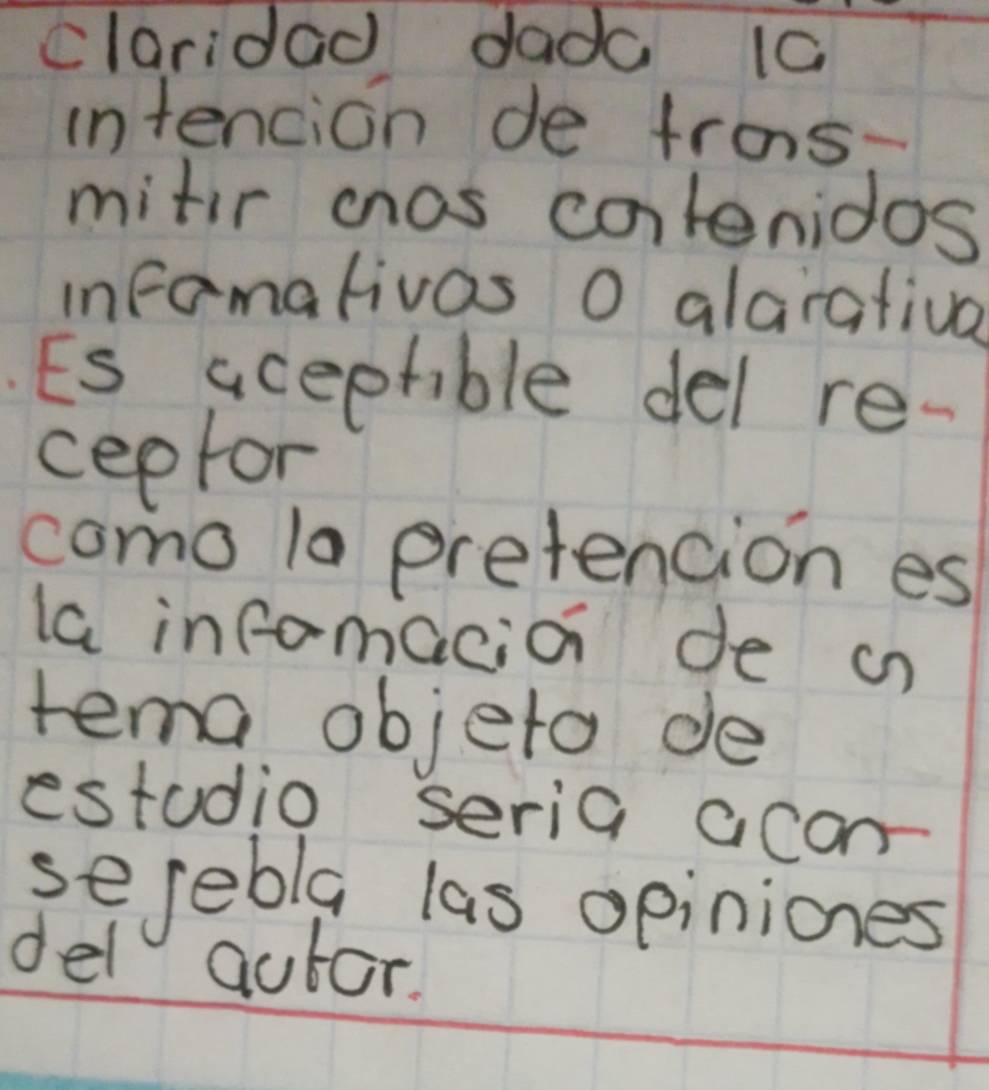 claridad dada la
intención de trans-
mitir unos contenidos
infomativos o alarativa
.Es aceptible del re-
ceptor
como la pretención es
la infomación de un
tema objeto de
estudio seria acon-
sejebla las opiniones
del autor.